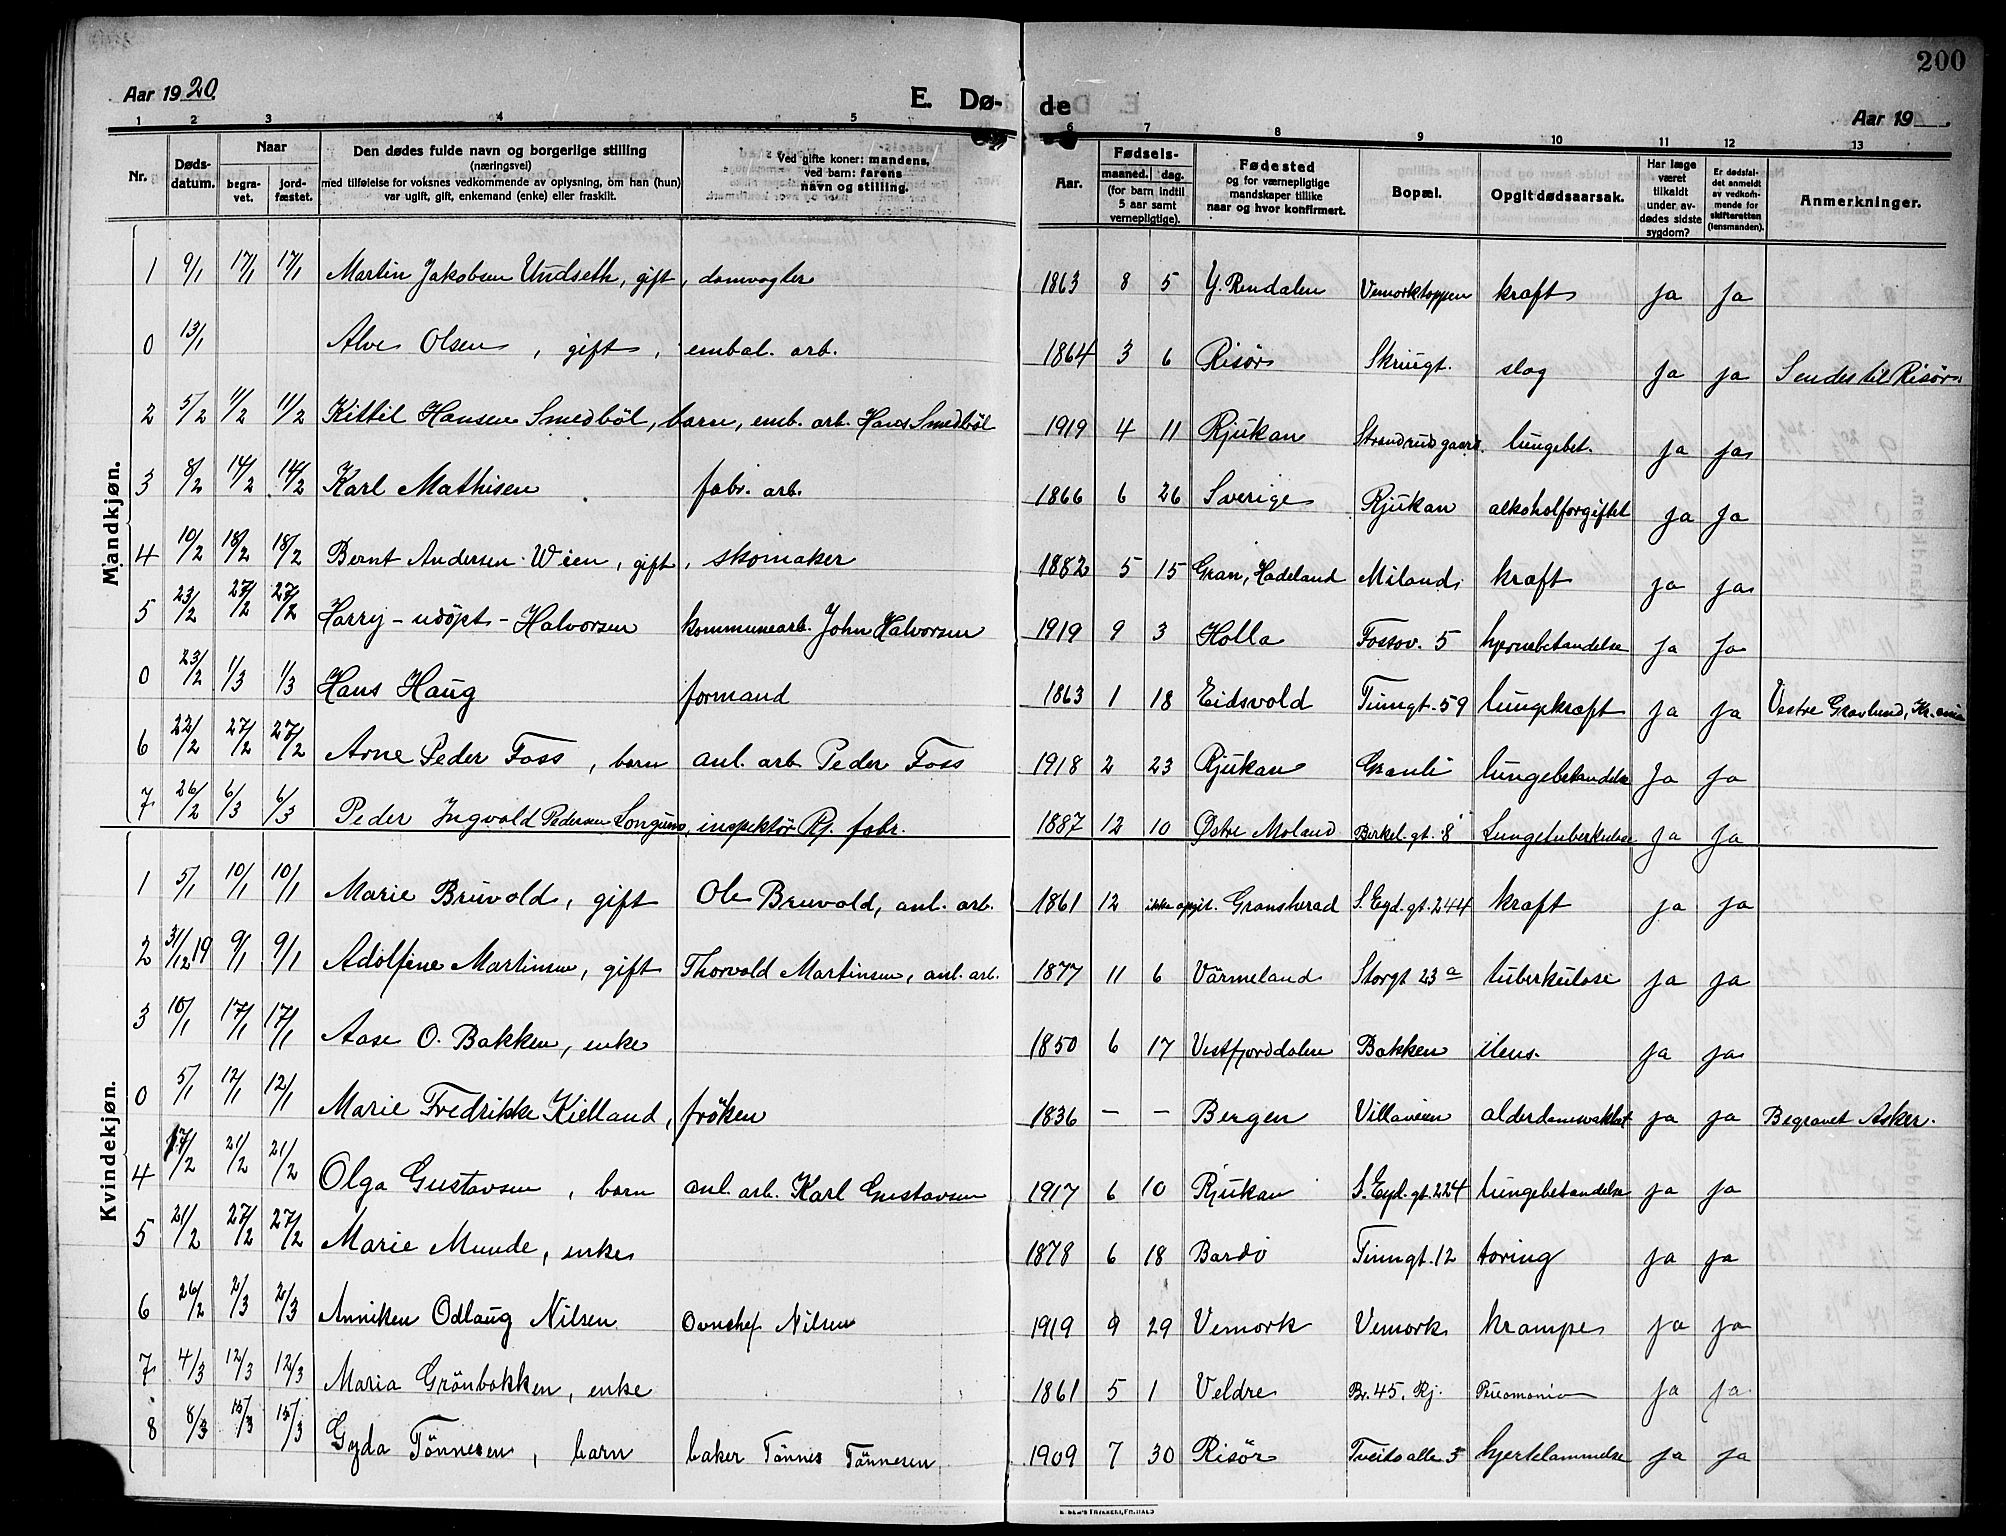 200
Aar 1920.
E. Dø-
de
Aar 19
1 2 3 4 5 6 7 8 9 10 11 12 13
Nr.
Døds-datum.
Naar
begra-vet.
jord-fæstet.
Den dødes fulde navn og borgerlige stilling
(næringsvei)
med tilføielse for voksnes vedkommende av oplysning, om han (hun)
var ugift, gift, enkemand (enke) eller fraskilt.
Ved gifte koner: mandens,
ved barn: farens
navn og stilling.
Aar.
Fødsels-
maaned. dag.
(for barn indtil
5 aar samt
vernepligtige).
Fødested
og for værnepligtige
mandskaper tillike
naar og hvor konfirmert.
Bopæl.
Opgit dødsaarsak.
Har læge
været
tilkaldt
under av-
dødes sidste
sygdom?
Er dødsfal-
det anmeldt
av vedkom-
mende for
skifteretten
(lensmanden).
Anmerkninger.
Mandkjøn.
1 9/1 17/1 17/1 Martin Jakobsen Undseth, gift, damvogter 1863 8 5 Y. Rendalen Vemorktoppen kræft ja ja
0 13/1 Alve Olsen, gift, embal. arb. 1864 3 6 Risør Skriugt. slag ja ja Sendes til Risør
2 5/2 11/2 11/2 Kittil Hansen Smedböl, barn, emb. arb. Hans Smedböl 1919 4 11 Rjukan Strandrudgaard. lungebet. ja ja
3 8/2 14/2 14/2 Karl Mathisen fabr. arb. 1866 6 26 Sverige Rjukan alkoholforgiftet ja ja
4 10/2 18/2 18/2 Bernt Andersen Wien, gift, skomaker 1882 5 15 Gran, Hadeland Miland kræft ja ja
5 23/2 27/2 27/2 Harry - udöpt - Halvorsen kommunearb. John Halvorsen 1919 9 3 Holla Fossov. 5 hjernebetændelse ja ja
0 23/2 1/3 1/3 Hans Haug formand 1863 1 18 Eidsvold Tinngt. 59 lungekræft ja ja Vestre Gravlund, Kr.ania
6 22/2 27/2 27/2 Arne Peder Foss, barn anl. arb. Peder Foss 1918 2 23 Rjukan Granli lungebetændelse ja ja
7 26/2 6/3 6/3 Peder Ingvald Pedersen Longum, inspektör Rj. fabr. 1887 12 10 Østre Moland Birkel. gt. 8 Lungetuberkulose ja ja
Kvindekjøn.
1 5/1 10/1 10/1 Marie Bruvold, gift Ole Bruvold, anl. arb. 1861 12 ikke opgit. Gransherad S. Eyd. gt. 244 kræft ja ja
2 31/12 19 9/1 9/1 Adolfine Martinsen, gift Thorvald Martinsen, anl. arb. 1877 11 6 Värmeland Storgt 23 a tuberkulose ja ja
3 10/1 17/1 17/1 Aase O. Bakken, enke 1850 6 17 Vestfjorddalen Bakken ileus. ja ja
0 5/1 12/1 12/1 Marie Fredrikke Kielland, fröken 1836 – – Bergen Villaveien alderdomssvakhet ja ja Begravet Asker.
4 17/2 21/2 21/2 Olga Gustavsen, barn anl. arb. Karl Gustavsen 1917 6 10 Rjukan S. Eyd. gt. 224 lungebetændelse ja ja
5 21/2 27/2 27/2 Marie Munde, enke 1878 6 18 Bardö Tinngt. 12 tæring ja ja
6 26/2 2/3 2/3 Anniken Odlaug Nilsen Ovnchef Nilsen 1919 9 29 Vemork Vemork krampe ja ja
7 4/3 12/3 12/3 Maria Grönbakken, enke 1861 5 1 Veldre Br. 45, Rj. Pneumonia ja ja
8 8/3 15/3 15/3 Gyda Tönnesen, barn baker Tönnes Tönnesen 1909 7 30 Risör Tveito alle 5 hjertelammelse ja ja